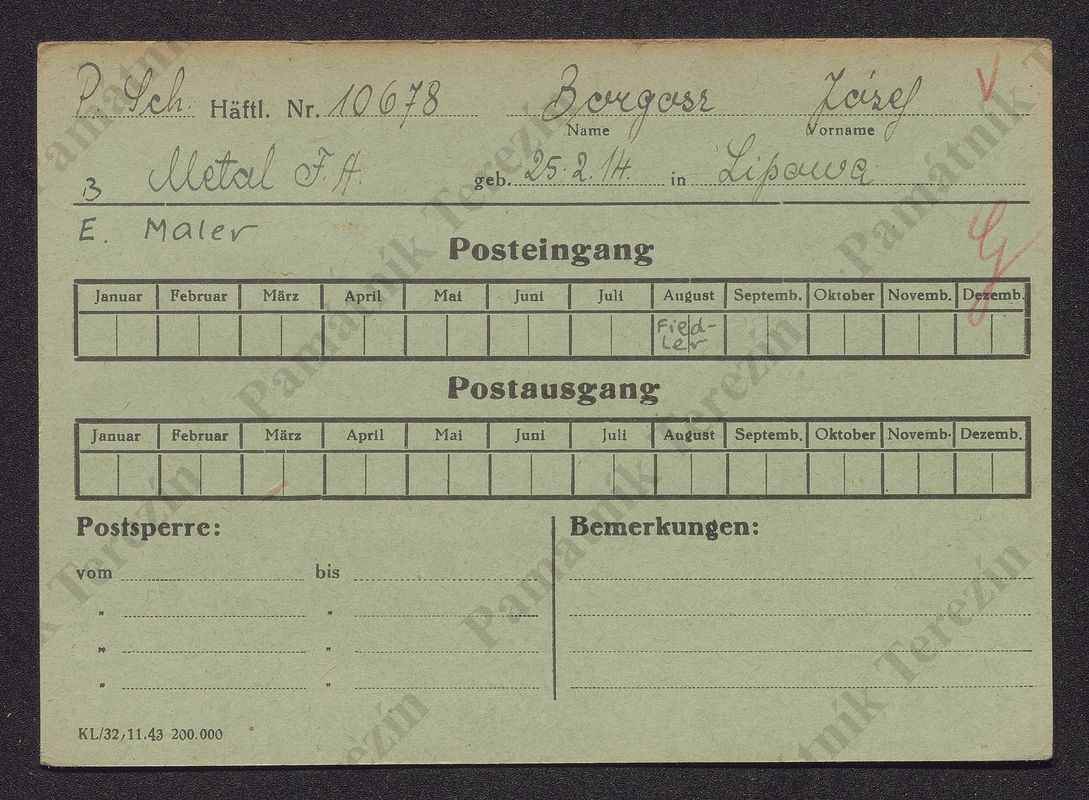 P. Sch. Häftl. Nr. 10678 Borgosz Józef
Name Vorname
B Metal F.A. geb. 25.2.14. in Lipowa
E. Maler
Posteingang
Januar Februar März April Mai Juni Juli August Septemb. Oktober Novemb. Dezemb.
Fied-
ler
Postausgang
Januar Februar März April Mai Juni Juli August Septemb. Oktober Novemb. Dezemb.
Postsperre: Bemerkungen:
vom bis
" "
" "
" "
KL/32, 11.43 200.000
Památník Terezín